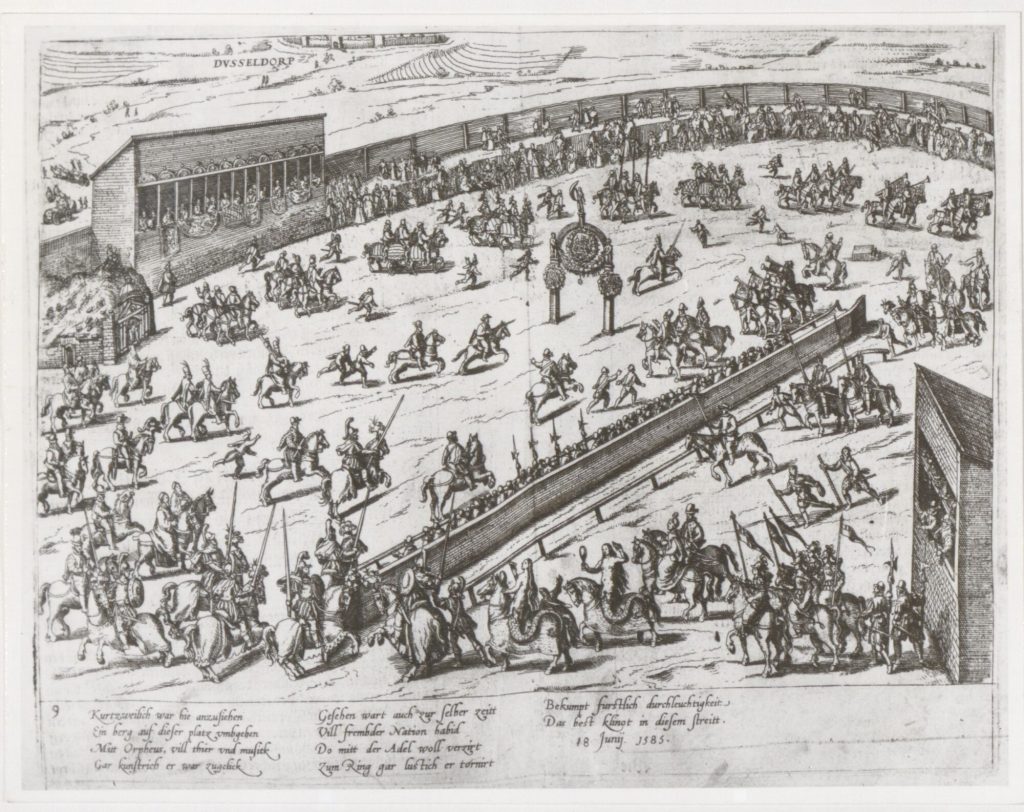 DVSSELDORP
9
Kurtzweilich war hie anzusehen
Ein berg auf dieser platz vmbgeben
Mitt Orpheus, vill thier vnd musick
Gar kunstrich er war zugelick
Gesehen wart auch zur selber zeitt
Vill frembder Nation habid
Do mitt der Adel woll verzirt
Zum Ring gar lustich er tornirt
Bekumpt furstlich durchleuchtigkeit
Das best klinot in diesem streitt.
18 Junij 1585.